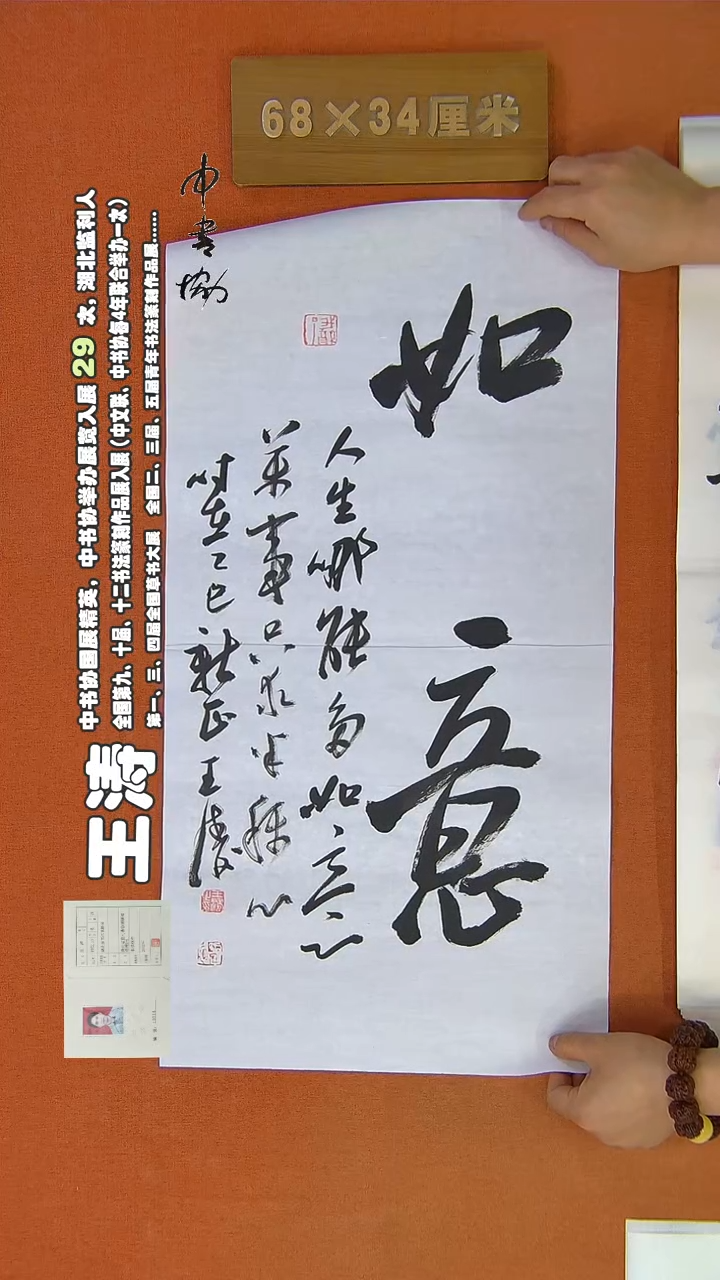 68×34厘米
中书协
如意
人生哪能多如意
万事只求半称心
时在乙巳新正王涛
王涛
中书协国展精英，中书协举办展赛入展 29 次，湖北监利人
全国第九、十届、十二书法篆刻作品展入展（中文联、中书协每4年联合举办一次）
第一、三、四届全国草书大展　全国二、三届、五届青年书法篆刻作品展……